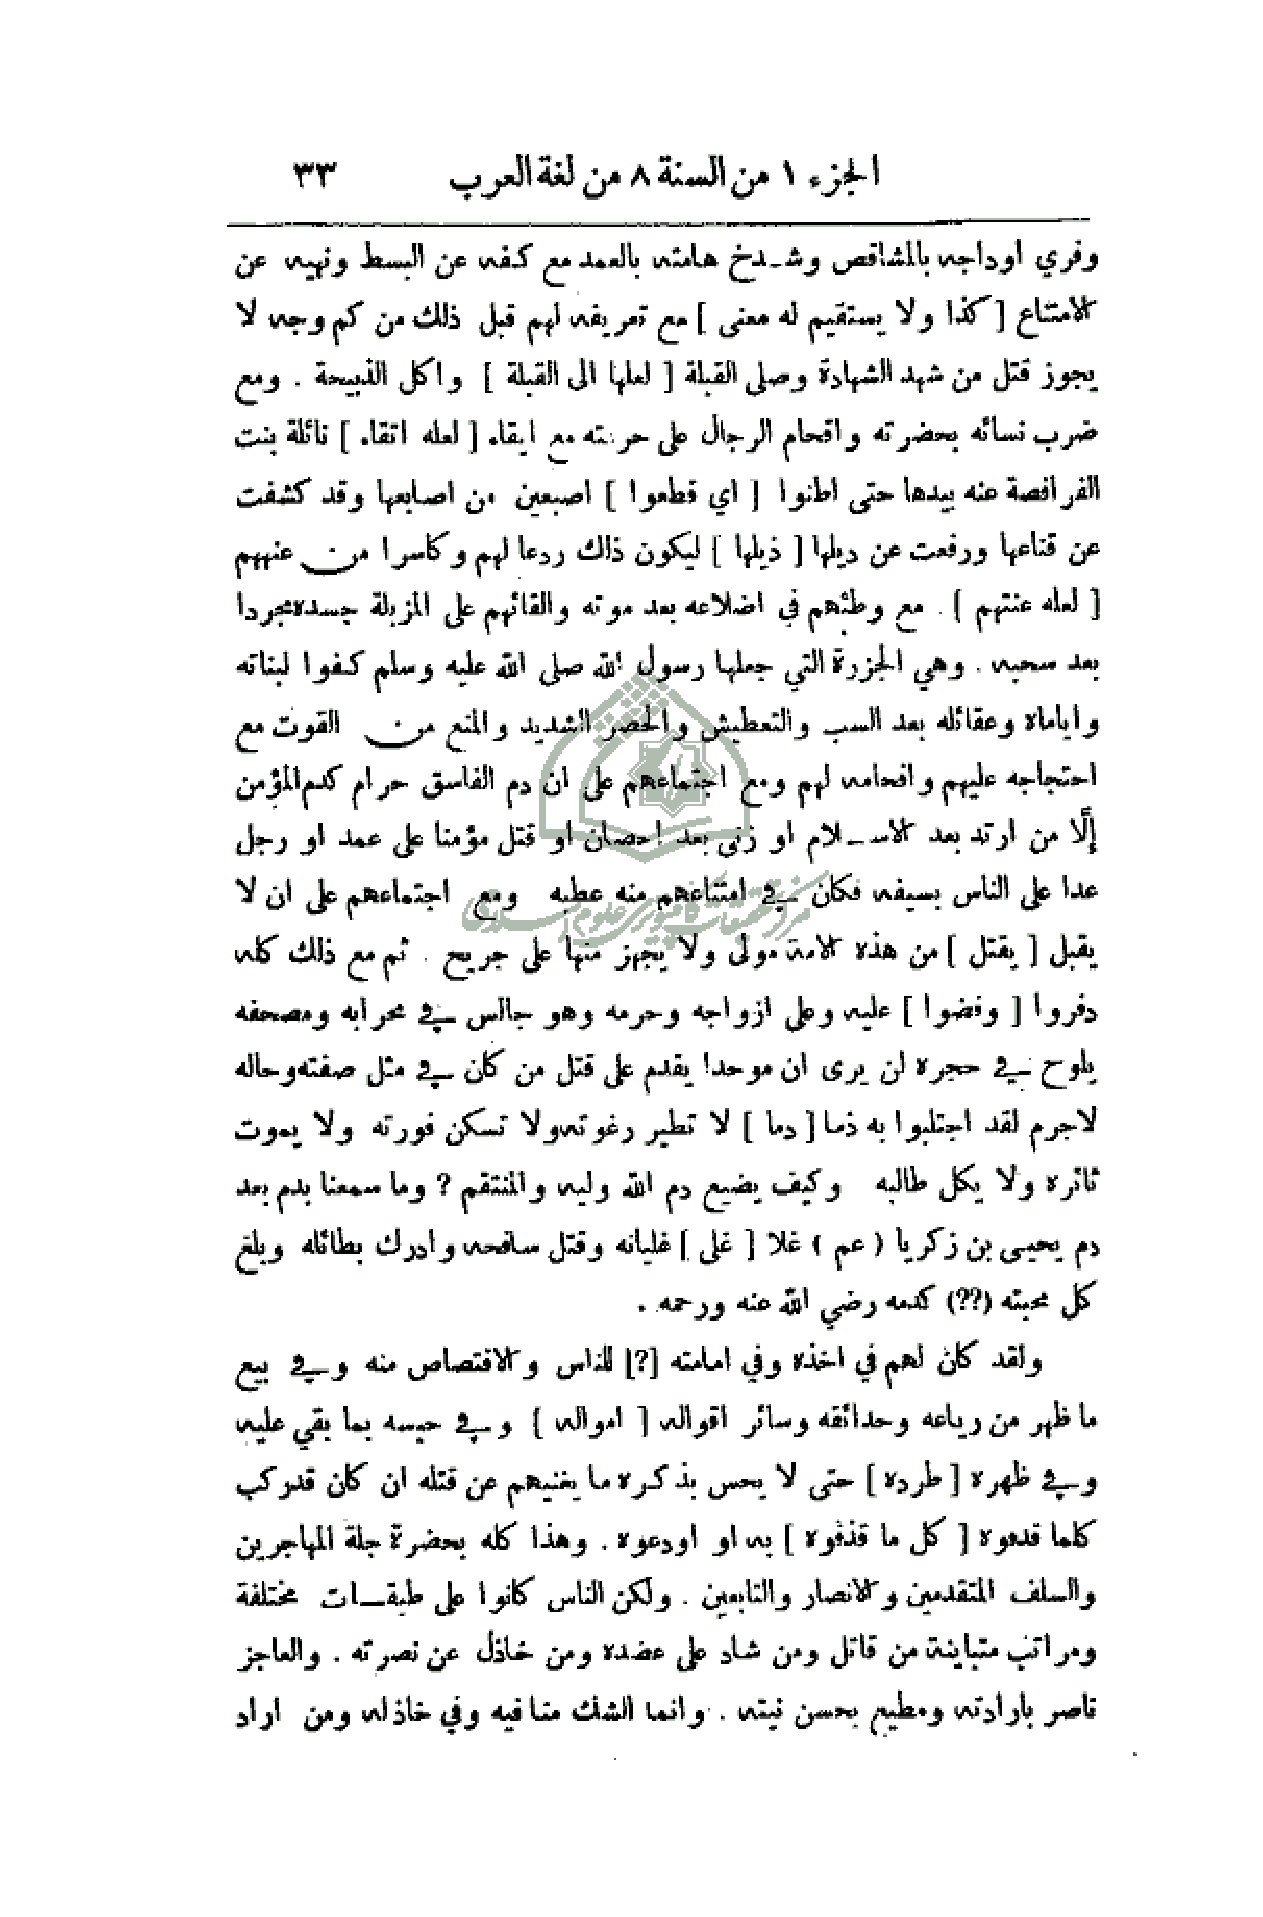 الجزء ١ من السنة ٨ من لغة العرب ٣٣
وفري اوداجه بالمشاقص وشـدخ هامته بالعمد مع كفه عن البسط ونهيه عن
الامتناع [ كذا ولا يستقيم له معنى ] مع تعريفه لهم قبل ذلك من كم وجه لا
يجوز قتل من شهد الشهادة وصلى القبلة [ لعلها الى القبلة ] واكل الذبيحة . ومع
ضرب نسائه بحضرته واقحام الرجال على حرمته مع ايقاء [ لعله اتقاء ] نائلة بنت
الفرافصة عنه بيدها حتى اطنوا [ اي قطعوا ] اصبعين من اصابعها وقد كشفت
عن قناعها ورفعت عن ديلها [ ذيلها ] ليكون ذاك ردعا لهم وكاسرا من عنههم
[ لعله عنتهم ] . مع وطئهم في اضلاعه بعد موته والقائهم على المزبلة جسده مجردا
بعد سحبه . وهي الجزرة التي جعلها رسول الله صلى الله عليه وسلم كفوا لبناته
واياماه وعقائله بعد السب والتعطيش والحصر الشديد والمنع من القوت مع
احتجاجه عليهم وافحامه لهم ومع اجتماعهم على ان دم الفاسق حرام كدم المؤمن
إلّا من ارتد بعد الاسـلام او زنى بعد احصان او قتل مؤمنا على عمد او رجل
عدا على الناس بسيفه فكان في امتناعهم منه عطبه ومع اجتماعهم على ان لا
يقبل [ يقتل ] من هذه الامة مولى ولا يجهز منها على جريح . ثم مع ذلك كله
دفروا [ وفضوا ] عليه وعلى ازواجه وحرمه وهو جالس في محرابه ومصحفه
يلوح في حجره لن يرى ان موحدا يقدم على قتل من كان في مثل صفته وحاله
لاجرم لقد اجتلبوا به ذما [ دما ] لا تطير رغوته ولا تسكن فورته ولا يموت
ثائره ولا يكل طالبه وكيف يضيع دم الله وليه والمنتقم ? وما سمعنا بدم بعد
دم يحيى بن زكريا ( عم ) غلا [ غلى ] غليانه وقتل سافحه وادرك بطائله وبلغ
كل محبته (??) كدمه رضي الله عنه ورحمه .
ولقد كان لهم في اخذه وفي امامته [?] للناس والاقتصاص منه وفي بيع
ما ظهر من رباعه وحدائقه وسائر اقواله [ امواله ] وفي حبسه بما بقي عليه
وفي ظهره [ طرده ] حتى لا يحس بذكره ما يغنيهم عن قتله ان كان قد ركب
كلما قدموه [ كل ما قذفوه ] به او ادعوه . وهذا كله بحضرة جلة المهاجرين
والسلف المتقدمين والانصار والتابعين . ولكن الناس كانوا على طبقـات مختلفة
ومراتب متباينة من قاتل ومن شاد على عضده ومن خاذل عن نصرته . والعاجز
ناصر بارادته ومطيع بحسن نيته . وانما الشك منا فيه وفي خاذله ومن اراد